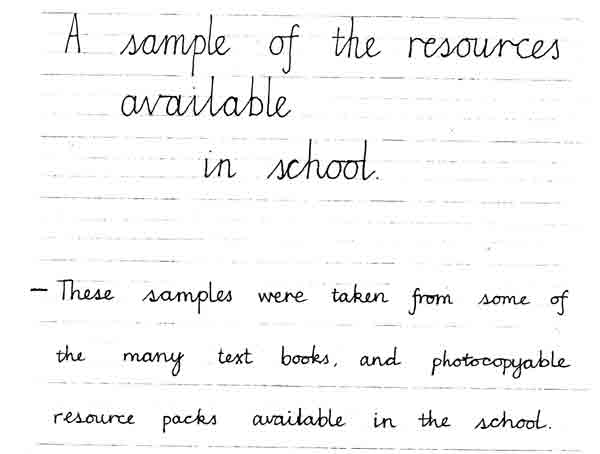 A sample of the resources
available
in school.
- These samples were taken from some of
the many text books, and photocopyable
resource packs available in the school.